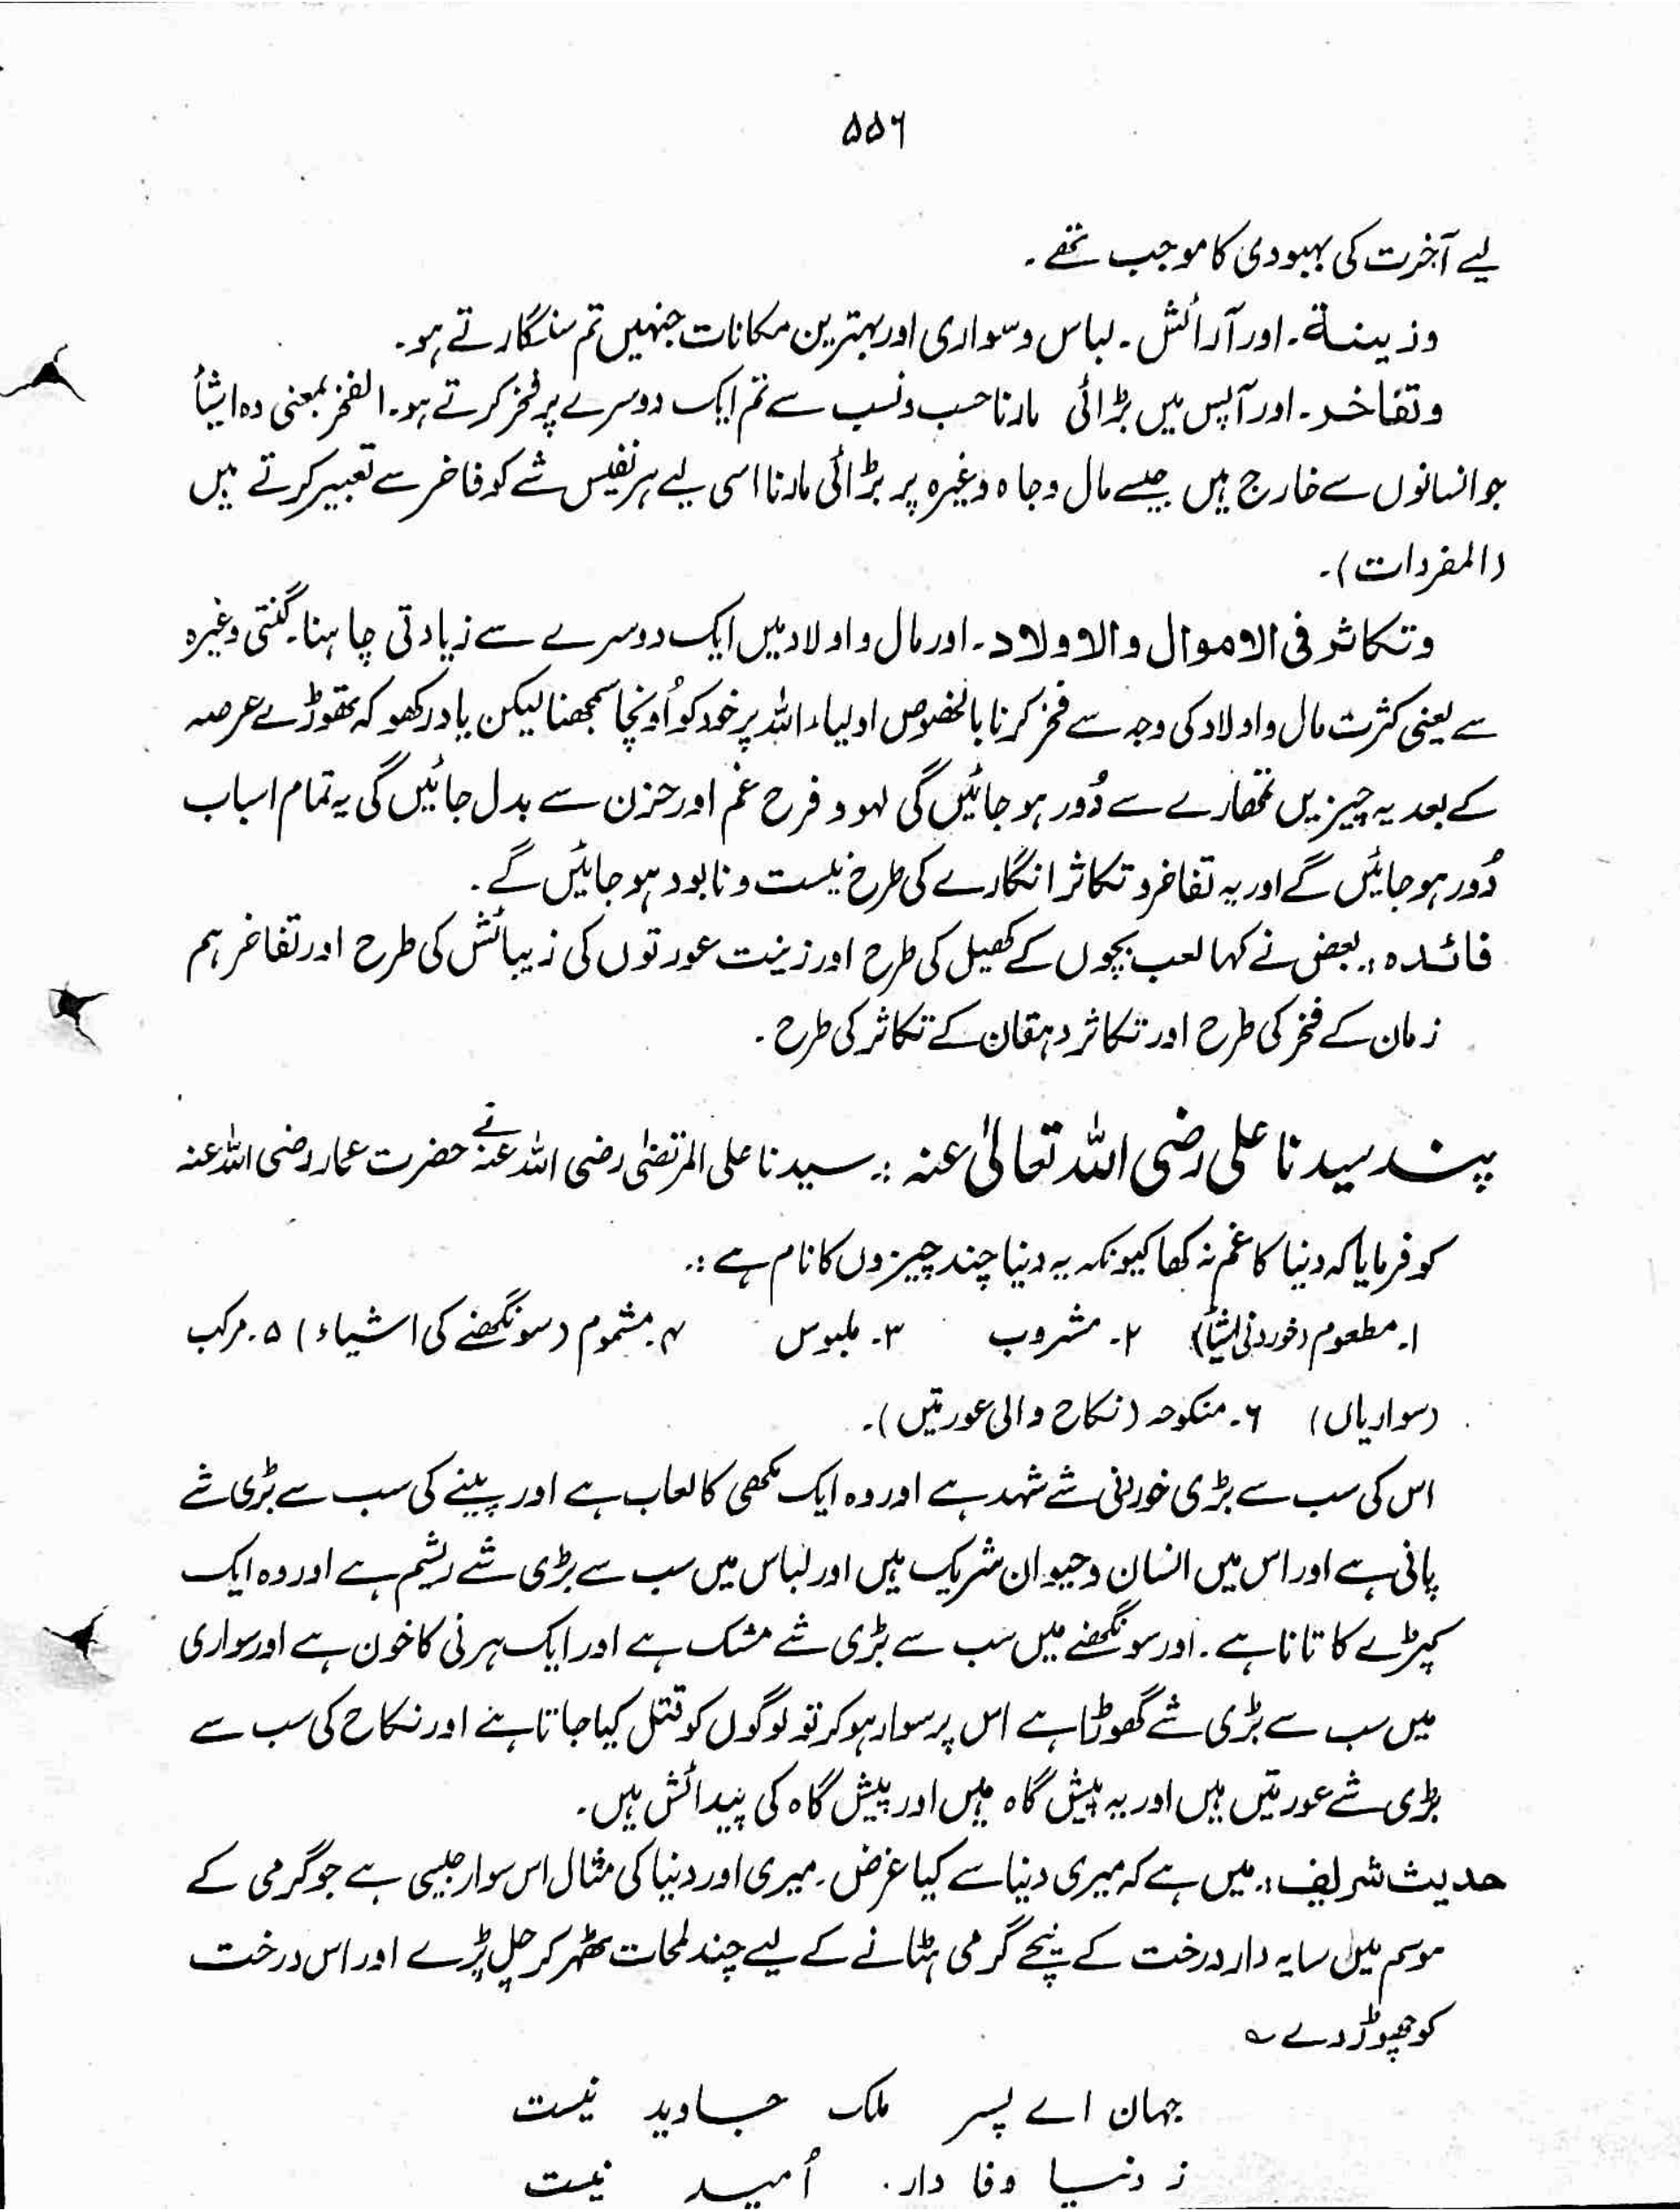 ۵۵۶
لیے آخرت کی بہبودی کا موجب تھے۔
وزینۃ۔ اور آرائش۔ لباس و سواری اور بہترین مکانات جنہیں تم سنگارتے ہو۔
وتفاخر۔ اور آپس میں بڑائی مارنا حسب و نسب سے تم ایک دوسرے پر فخر کرتے ہو۔ الفخر بمعنی وہ اشیأ
جو انسانوں سے خارج ہیں جیسے مال و جاہ وغیرہ پر بڑائی مارنا اسی لیے ہر نفیس شے کو فاخر سے تعبیر کرتے ہیں
(المفردات)۔
وتکاثر فی الاموال والاولاد۔ اور مال و اولاد میں ایک دوسرے سے زیادتی چاہنا۔ گنتی وغیرہ
سے یعنی کثرت مال و اولاد کی وجہ سے فخر کرنا بالخصوص اولیاء اللہ پر خود کو اُونچا سمجھنا لیکن یاد رکھو کہ تھوڑے عرصہ
کے بعد یہ چیزیں تمھارے سے دُور ہو جائیں گی لہو و فرح غم اور حزن سے بدل جائیں گی یہ تمام اسباب
دُور ہو جائیں گے اور یہ تفاخر و تکاثر انگارے کی طرح نیست و نابود ہو جائیں گے۔
فائدہ :۔ بعض نے کہا لعب بچوں کے کھیل کی طرح اور زینت عورتوں کی زیبائش کی طرح اور تفاخر ہم
زمان کے فخر کی طرح اور تکاثر دہقان کے تکاثر کی طرح۔
پند سیدنا علی رضی اللہ تعالیٰ عنہ :۔ سیدنا علی المرتضیٰ رضی اللہ عنہ نے حضرت عمار رضی اللہ عنہ
کو فرمایا کہ دنیا کا غم نہ کھا کیونکہ یہ دنیا چند چیزوں کا نام ہے :۔
۱۔ مطعوم (خوردنی اشیأ) ۲۔ مشروب ۳۔ ملبوس ۴۔ مشموم (سونگھنے کی اشیاء) ۵۔ مرکب
(سواریاں) ۶۔ منکوحہ (نکاح والی عورتیں)۔
اس کی سب سے بڑی خوردنی شے شہد ہے اور وہ ایک مکھی کا لعاب ہے اور پینے کی سب سے بڑی شے
پانی ہے اور اس میں انسان و حیوان شریک ہیں اور لباس میں سب سے بڑی شے ریشم ہے اور وہ ایک
کیڑے کا تانا ہے۔ اور سونگھنے میں سب سے بڑی شے مشک ہے اور ایک ہرنی کا خون ہے اور سواری
میں سب سے بڑی شے گھوڑا ہے اس پر سوار ہو کر تو لوگوں کو قتل کیا جاتا ہے اور نکاح کی سب سے
بڑی شے عورتیں ہیں اور یہ پیش گاہ ہیں اور پیش گاہ کی پیدائش ہیں۔
حدیث شریف :۔ میں ہے کہ میری دنیا سے کیا غرض۔ میری اور دنیا کی مثال اس سوار جیسی ہے جو گرمی کے
موسم میں سایہ دار درخت کے نیچے گرمی ہٹانے کے لیے چند لمحات ٹھہر کر چل پڑے اور اس درخت
کو چھوڑ دے ؎
جہان اے پسر ملک جاوید نیست
ز دنیا وفا دار۔ اُمید نیست